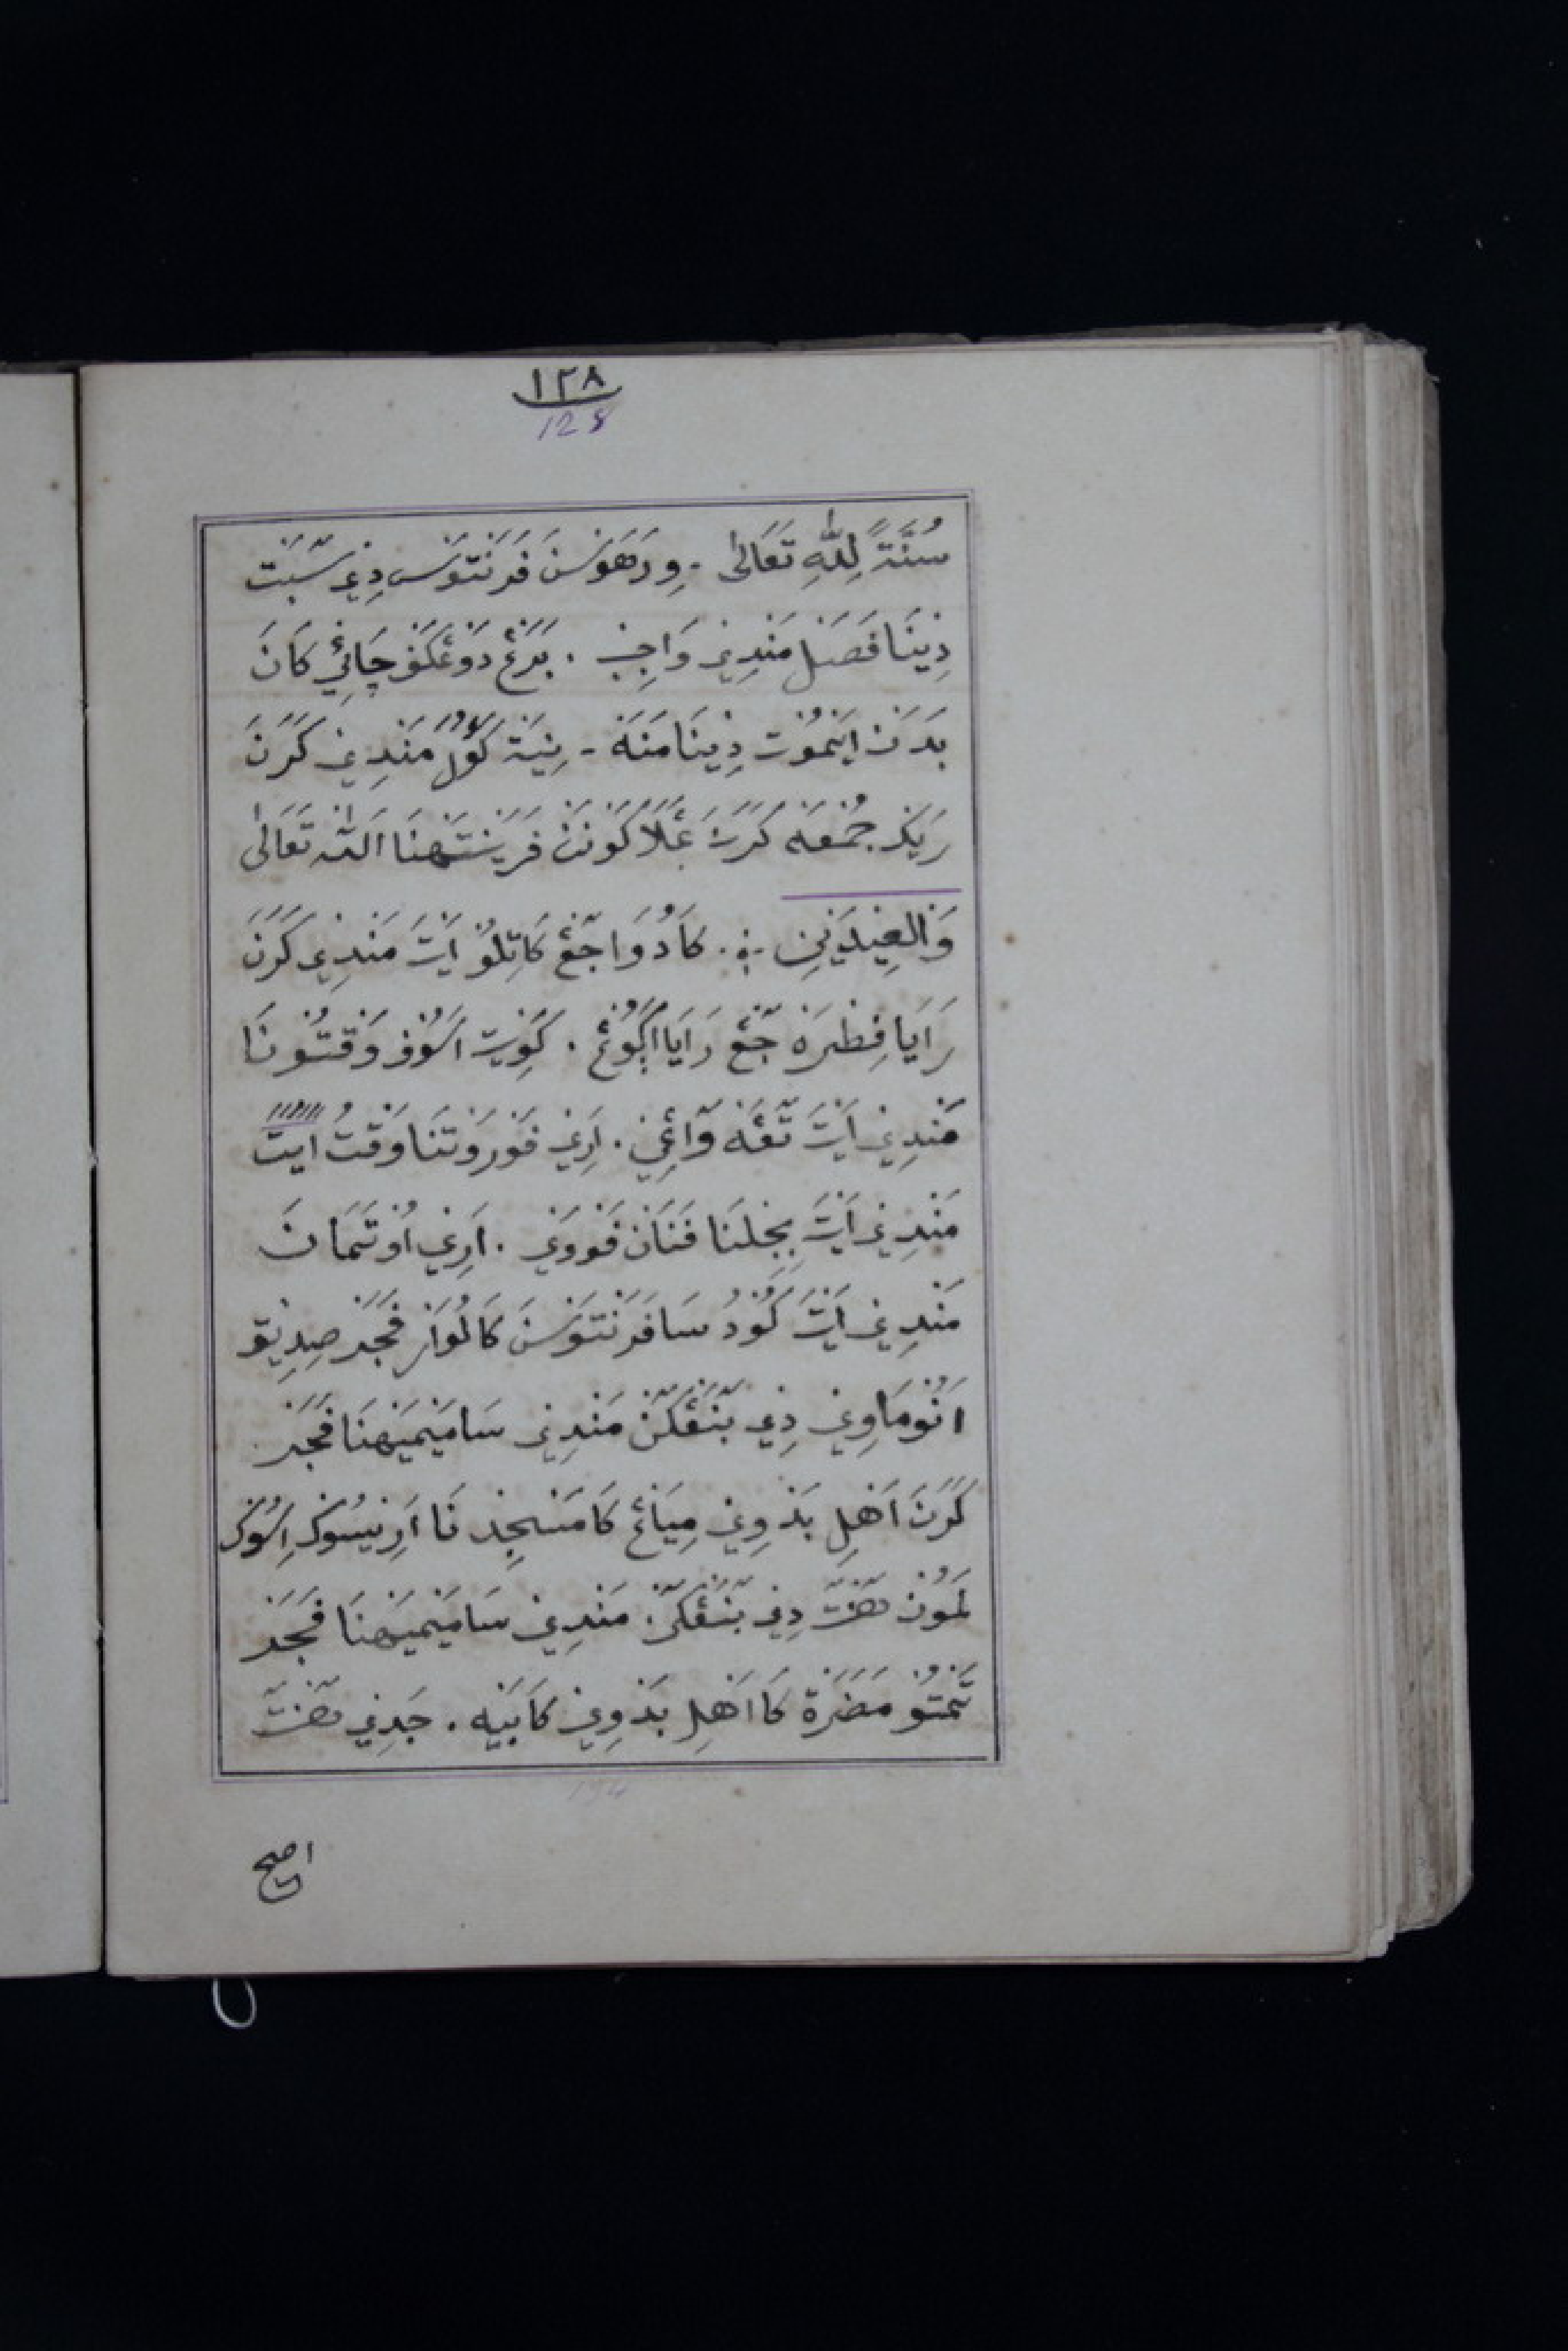 ١٢٨
128
سُنَّةً لِلّٰهِ تَعَالٰى . وِدَهَوْسَنَ فَرَنْتَوْسْ دِيْ سَبَبْ
دِيْنَا فَصَلْ مَنْدِيْ وَاجِبْ . بَرَڠْ دَوْڠَكَنْ چَائِيْ كَانَ
بَدَنْ اَيْنْمُوْتْ دِيْنَا مَنَهْ - نِيَةْ كَوْلُ مَنْدِيْ كَرَنَ
رَيَكَ جُمْعَهْ كَرَنَ عَلَا كَوْنَنْ فَرَيْنْتَهْنَا اَللّٰه تَعَالٰى
وَالْعِيْدَيْنِ . كَا دُوَا جَڠْ كَاتِلُوْ اَيْتَ مَنْدِيْ كَرَنَ
رَايَا فِطْرَهْ جَڠْ رَايَا اَكُوْڠْ . كَوِيْتْ اَسُوْفْ وَقْتُوْنَا
مَنْدِيْ اَيْتَ تَڠَهْ وَاڠِيْ . اَرِيْ فَوْرَوْتَنَا وَقْتُ اَيْتَ
مَنْدِيْ اَيْتَ بِجِلْنَا فَنَانْ فَوْوَيْ . اَرِيْ اُوْتَمَانَ
مَنْدِيْ اَيْتَ كُوْدُ سَافَرَنْتَوْسَنَ كَالُوَارْ فَجَرْ صِدِيْق
اَنُوْمَاوِيْ دِيْ بَنْڠَكَنْ مَنْدِيْ سَامَيْمَيْهْنَا فَجَرْ
كَرَنَ اَهْلِ بَدَوِيْ مِيَاڠْ كَا مَسْجِدْ نَا اَرِيْسُوْكْ اِسُوْكْ
لَمُوْنْ هَنْتَ دِيْ بَنْڠَكَنْ . مَنْدِيْ سَامَيْمَيْهْنَا فَجَرْ
تَمْتُوْ مَضَرَةْ كَا اَهْلِ بَدَوِيْ كَابَيْهْ . جَدِيْ هَنْتَ
اصح